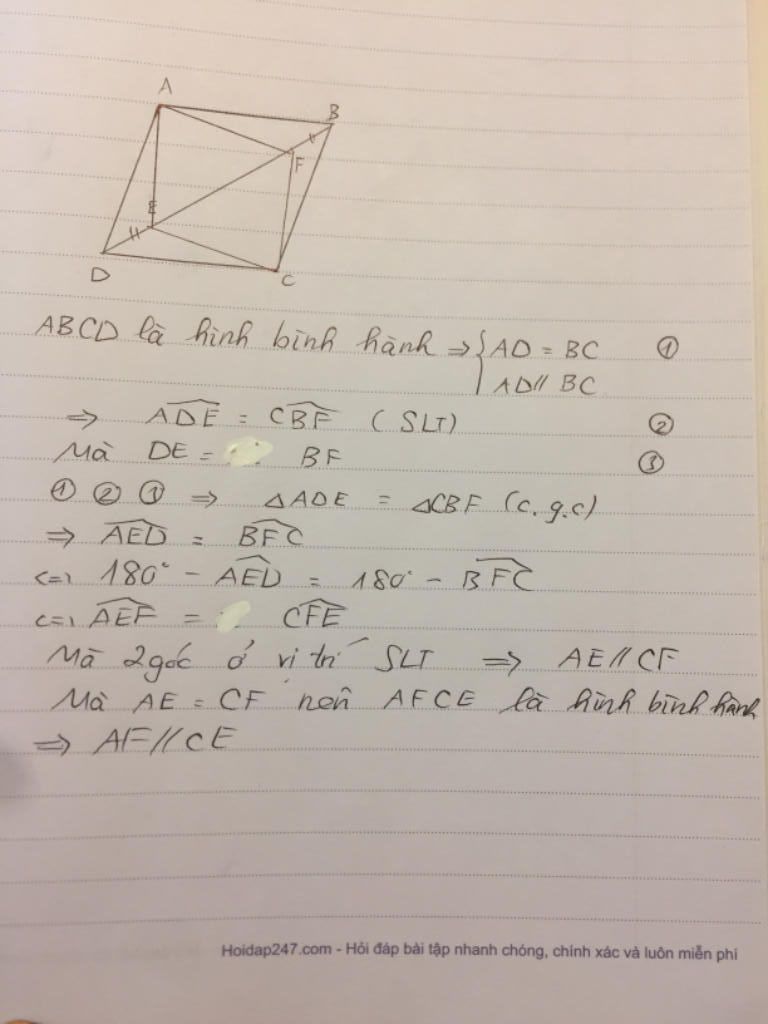 A
B
F
E
D
C
ABCD là hình bình hành ⇒ { AD = BC ①
AD // BC
⇒ \widehat{ADE} = \widehat{CBF} (SLT) ②
Mà DE = BF ③
① ② ③ ⇒ △ADE = △CBF (c.g.c)
⇒ \widehat{AED} = \widehat{BFC}
<=> 180° - \widehat{AED} = 180° - \widehat{BFC}
<=> \widehat{AEF} = \widehat{CFE}
Mà 2 góc ở vị trí SLT ⇒ AE // CF
Mà AE = CF nên AFCE là hình bình hành
⇒ AF // CE
Hoidap247.com - Hỏi đáp bài tập nhanh chóng, chính xác và luôn miễn phí